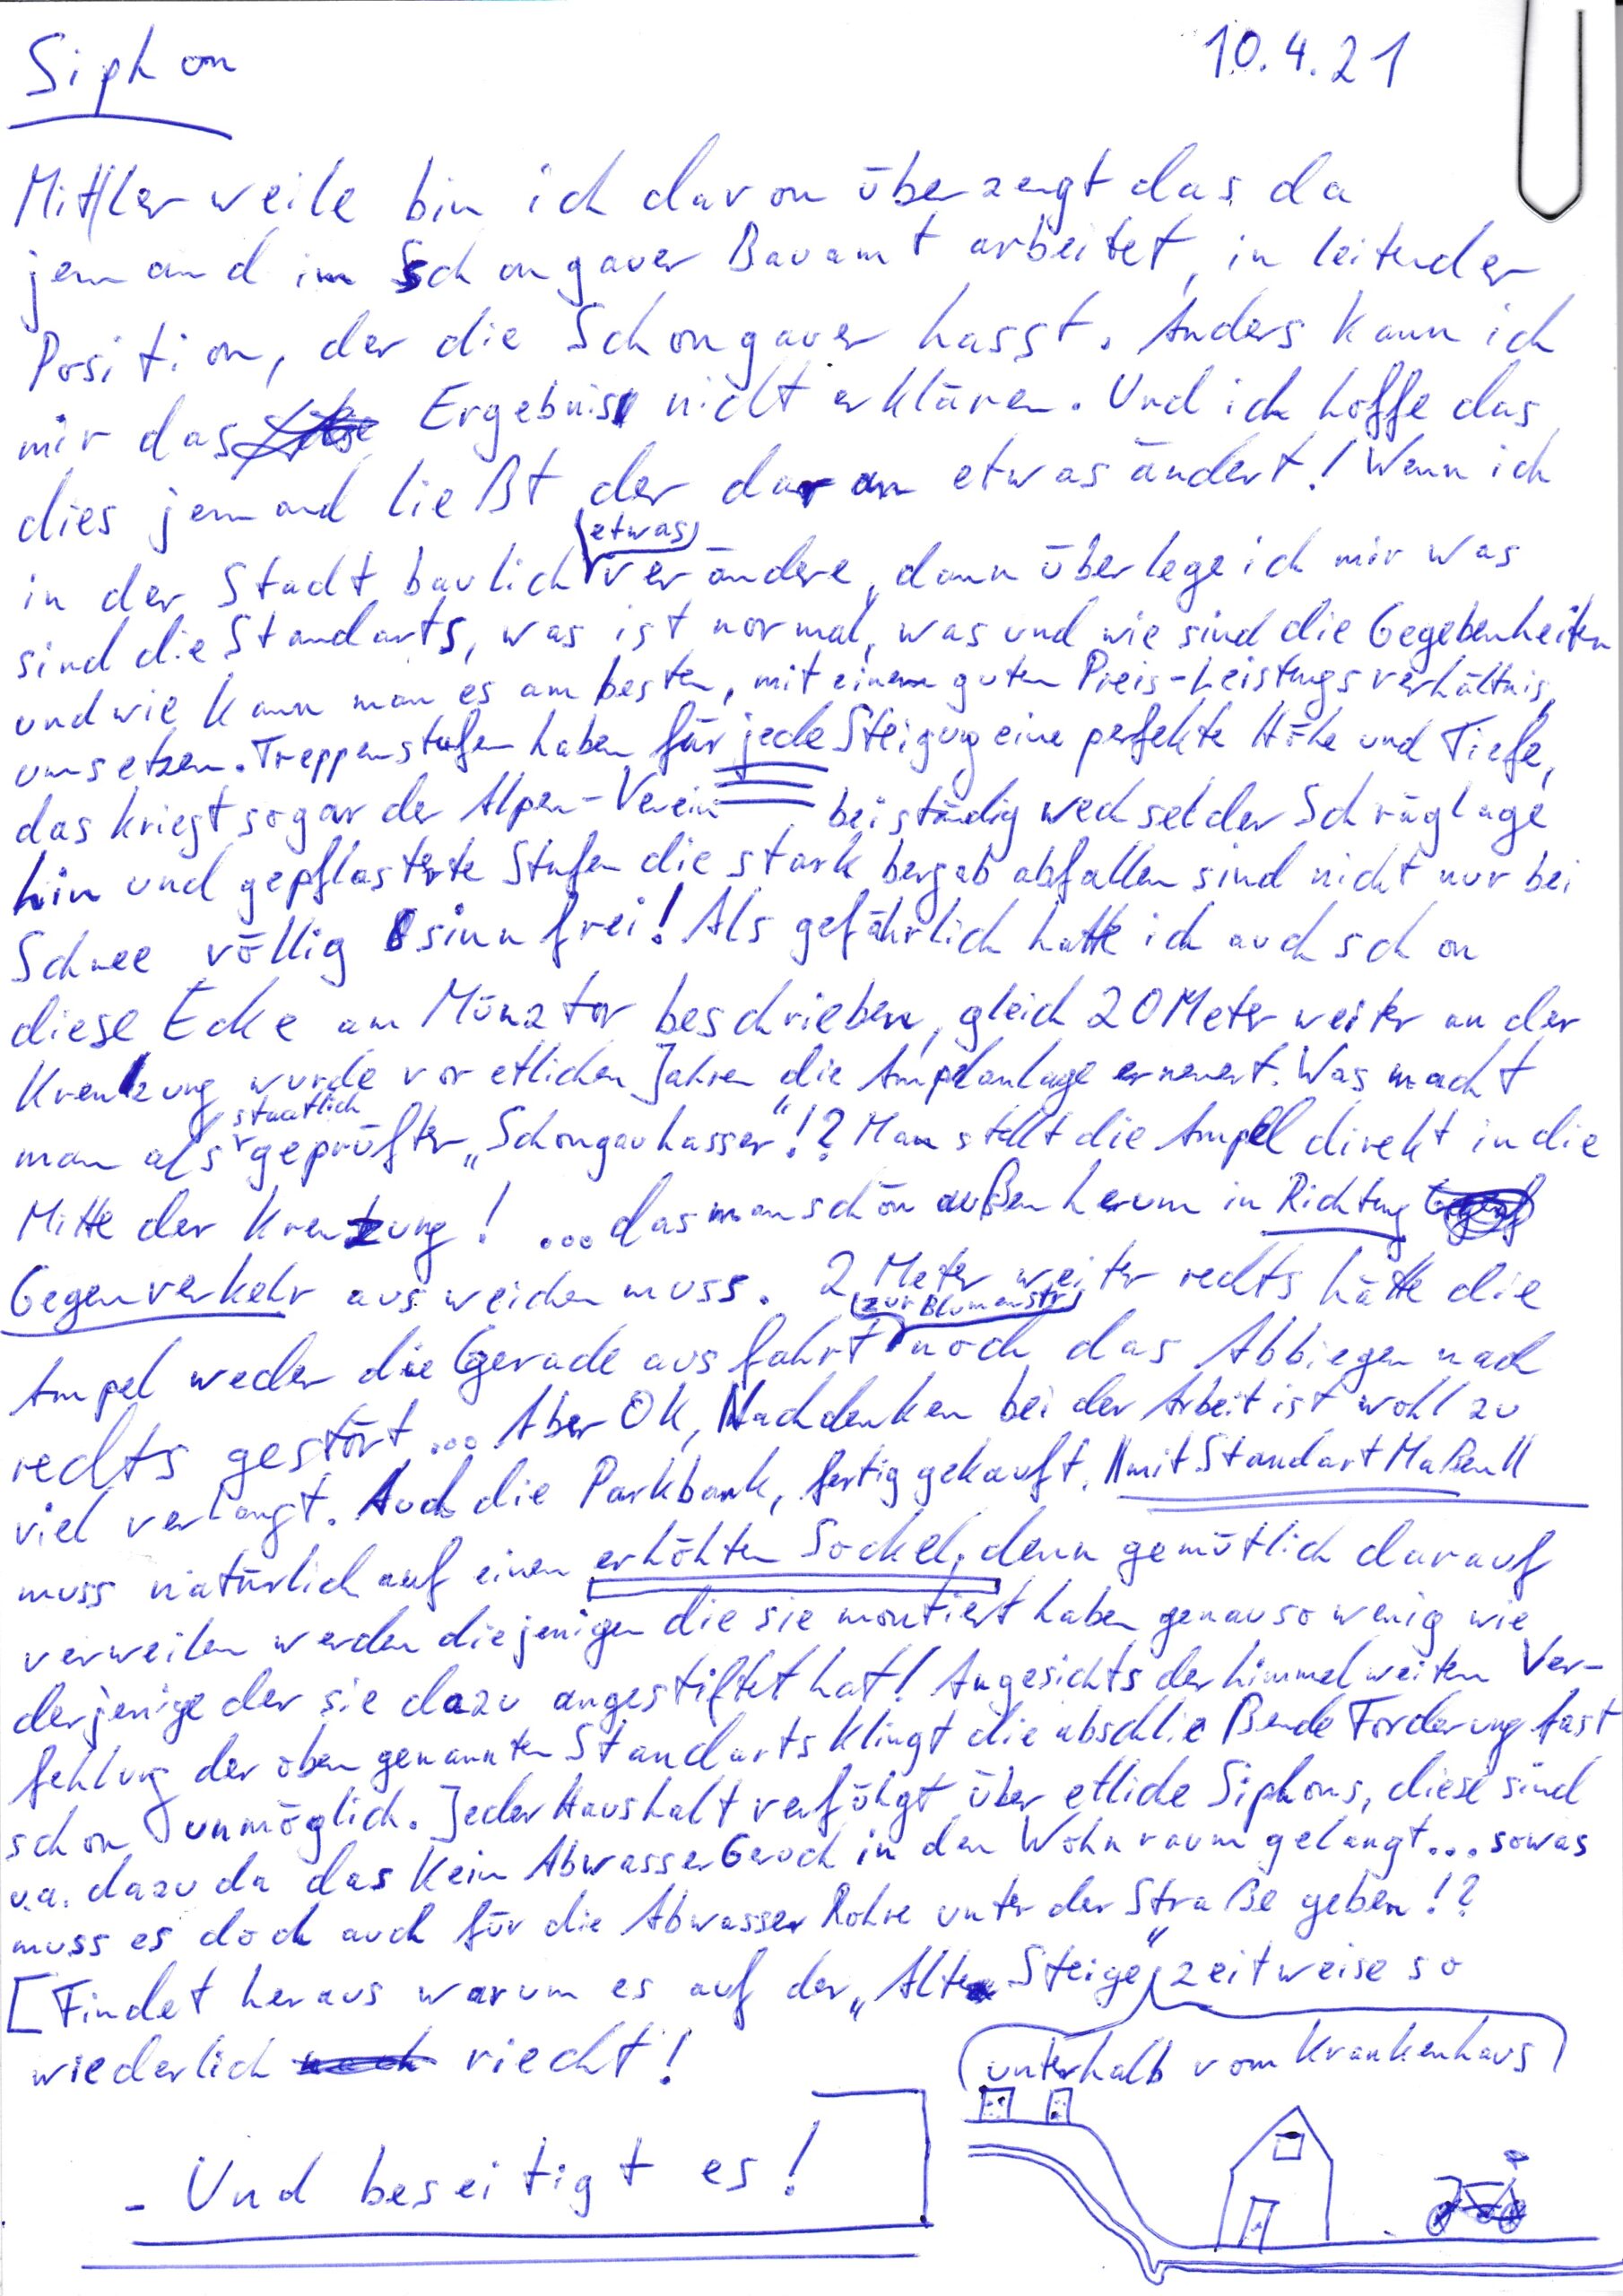 Siphon
10.4.21
Mittlerweile bin ich davon überzeugt das da
jemand im Schongauer Bauamt arbeitet, in leitender
Position, der die Schongauer hasst. Anders kann ich
mir das Ergebnis nicht erklären. Und ich hoffe das
dies jemand ließt der daran etwas ändert! Wenn ich
etwas
in der Stadt baulich verändere, dann überlege ich mir was
sind die Standarts, was ist normal, was und wie sind die Gegebenheiten
und wie kann man es am besten, mit einem guten Preis-Leistungsverhältnis,
umsetzen. Treppenstufen haben für jede Steigung eine perfekte Höhe und Tiefe,
das kriegt sogar der Alpen-Verein bei ständig wechselder Schräglage
hin und gepflasterte Stufen die stark bergab abfallen sind nicht nur bei
Schnee völlig sinnfrei! Als gefährlich hatte ich auch schon
diese Ecke am Münztor beschrieben, gleich 20 Meter weiter an der
Kreuzung wurde vor etlichen Jahren die Ampelanlage erneuert. Was macht
staatlich
man als geprüfter „Schongauhasser"!? Man stellt die Ampel direkt in die
Mitte der Kreuzung! ...das man schön außen herum in Richtung
Gegenverkehr ausweichen muss. 2 Meter weiter rechts hätte die
zur Blumenstr
Ampel weder die Geradeausfahrt noch das Abbiegen nach
rechts gestört... Aber OK, Nachdenken bei der Arbeit ist wohl zu
viel verlangt. Auch die Parkbank, fertig gekauft, "mit Standart Maßen"
muss natürlich auf einen erhöhten Sockel, denn gemütlich darauf
verweilen werden diejenigen die sie montiert haben genauso wenig wie
derjenige der sie dazu angestiftet hat! Angesichts der himmelweiten Ver-
fehlung der oben genannten Standarts klingt die abschließende Forderung fast
schon unmöglich. Jeder Haushalt verfühgt über etliche Siphons, diese sind
u.a. dazu da das kein Abwasser Geruch in den Wohnraum gelangt... sowas
muss es doch auch für die Abwasser Rohre unter der Straße geben!?
[Findet heraus warum es auf der „Alten Steige" zeitweise so
(unterhalb vom Krankenhaus)
wiederlich riecht!
- Und beseitigt es!]